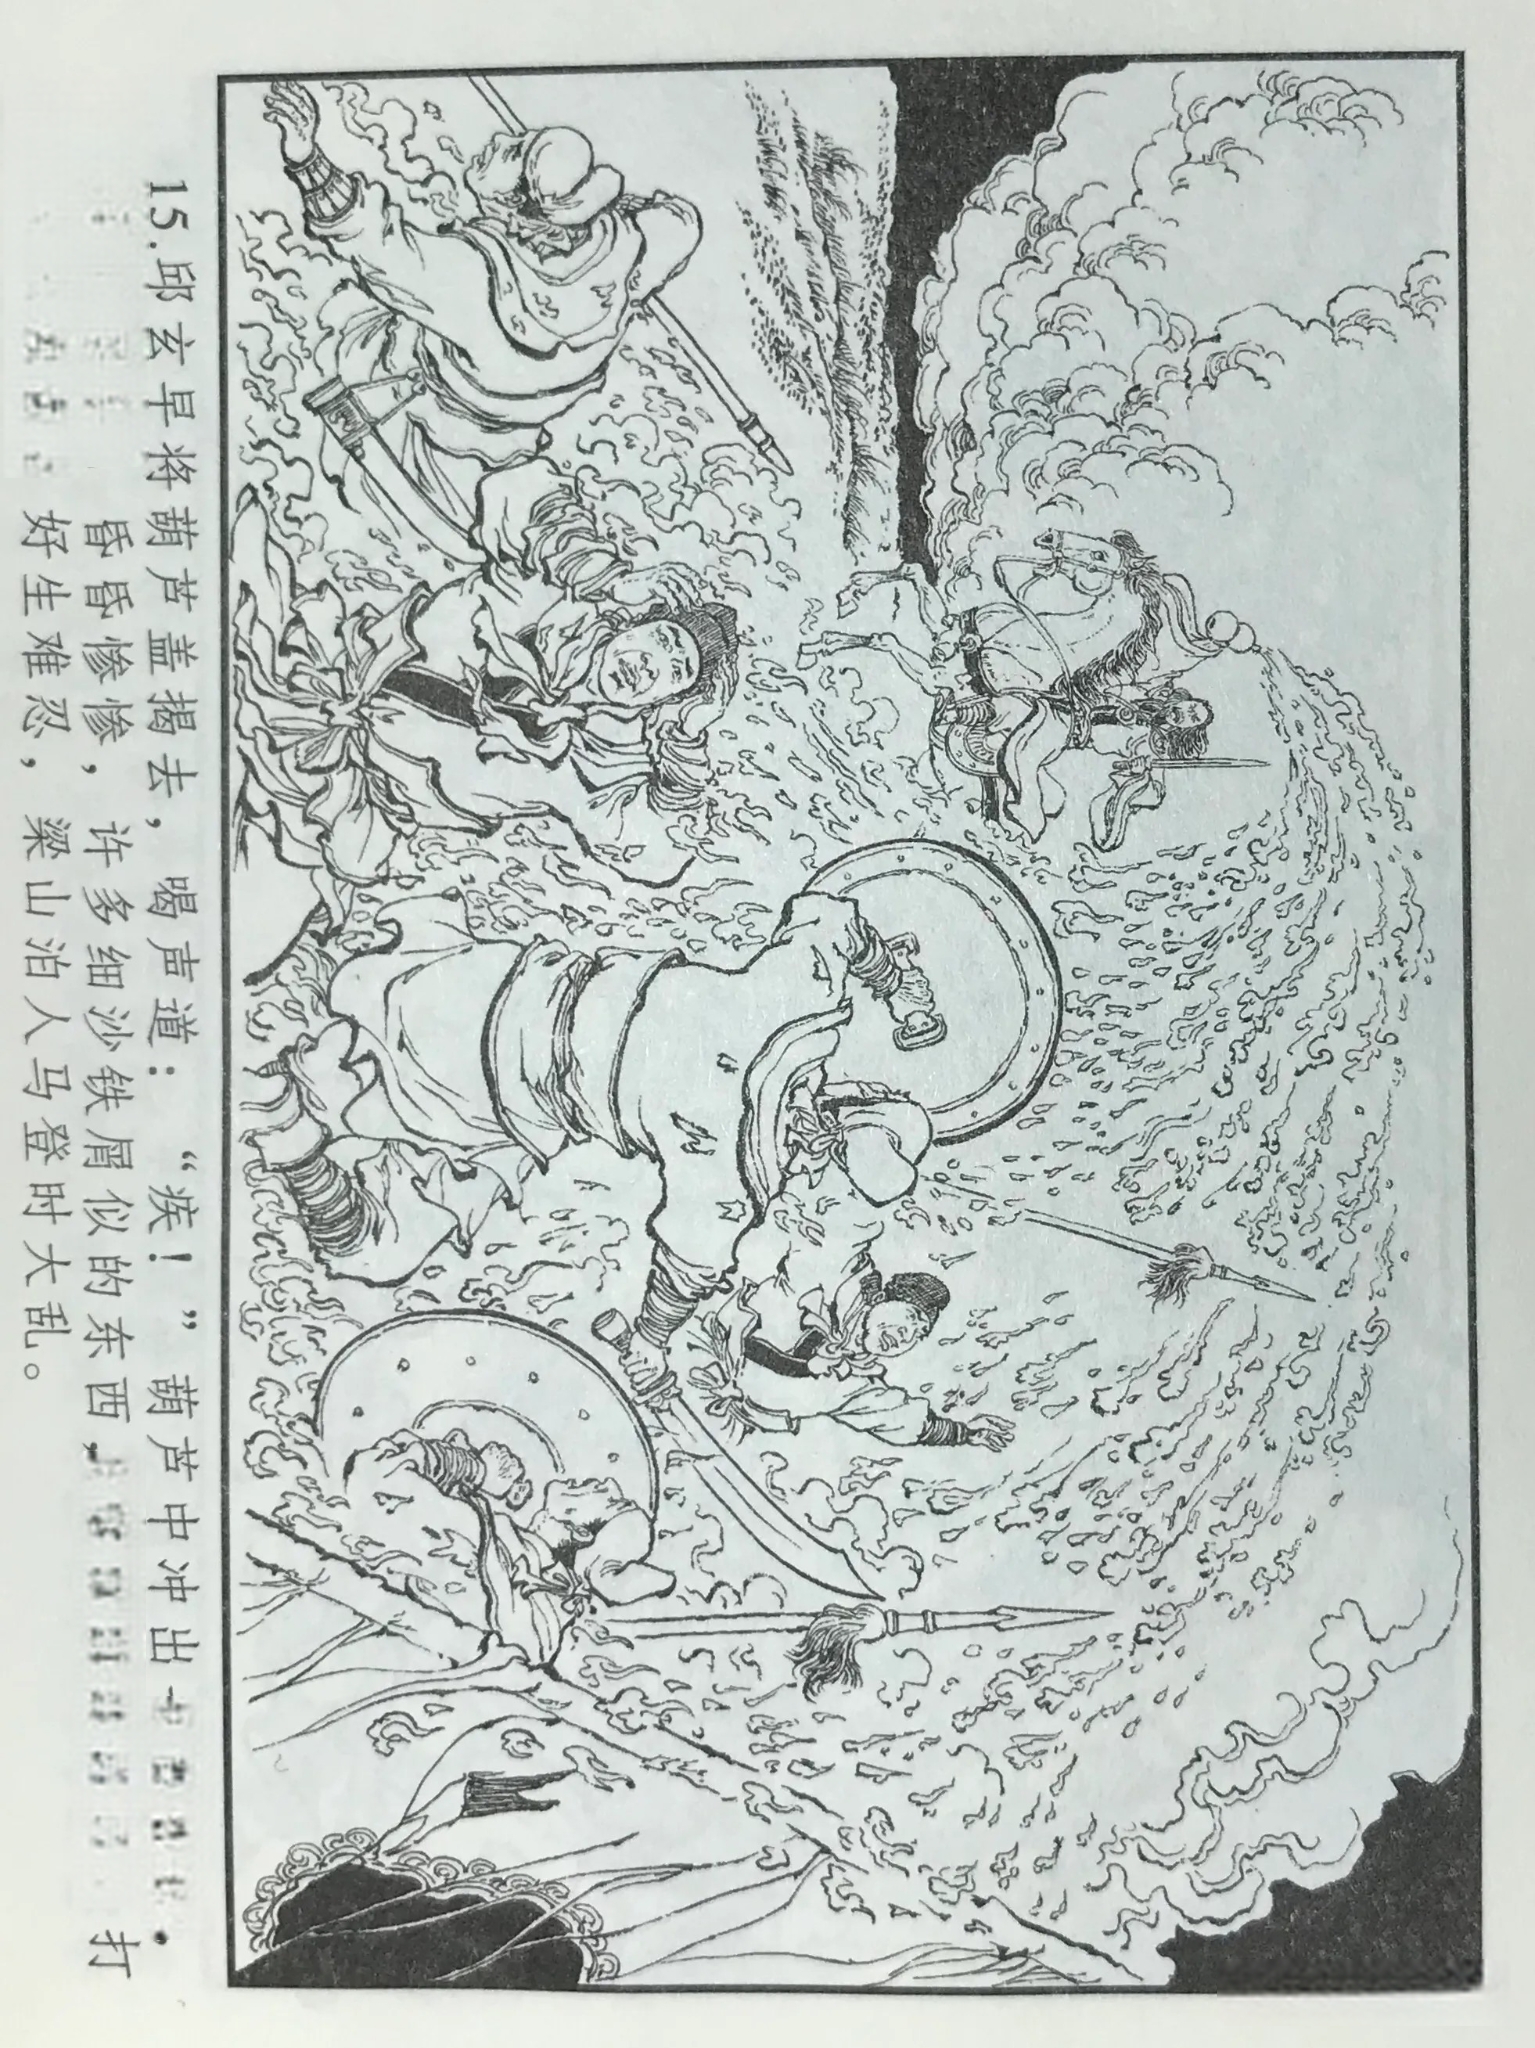 15.邱玄早将葫芦盖揭去，喝声道：“疾！”葫芦中冲出
昏昏惨惨，许多细沙铁屑似的东西，打
好生难忍，梁山泊人马登时大乱。